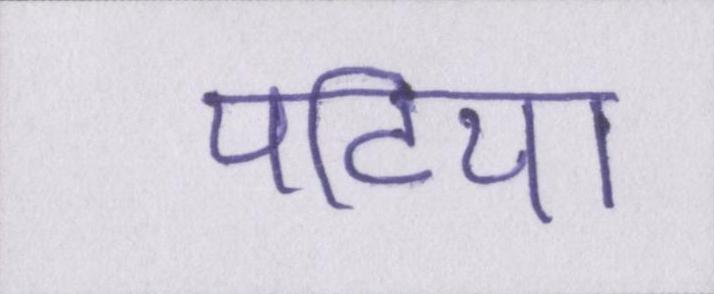 पटिया